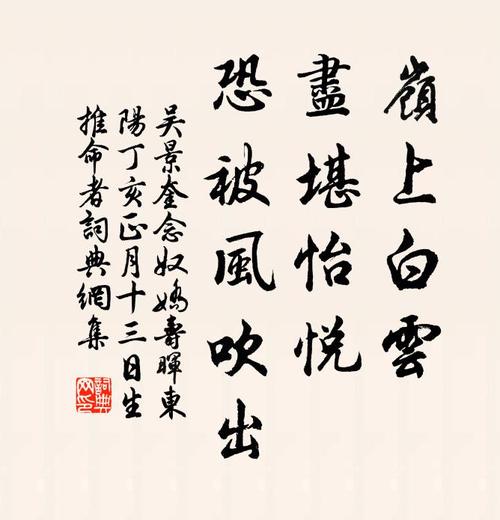 嶺上白雲
盡堪怡悅
恐被風吹出
吳景奎念奴嬌壽暉東
陽丁亥正月十三日生
推命者詞典網集
詞典网印